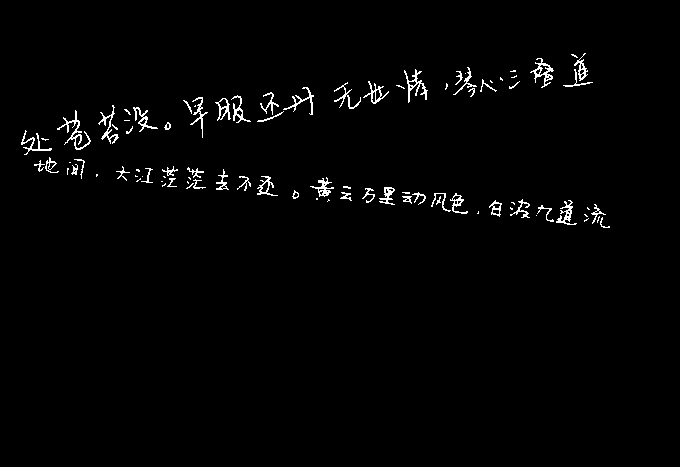 处苍苔没。早服还丹无世情，琴心三叠道
地间，大江茫茫去不还。黄云万里动风色，白波九道流